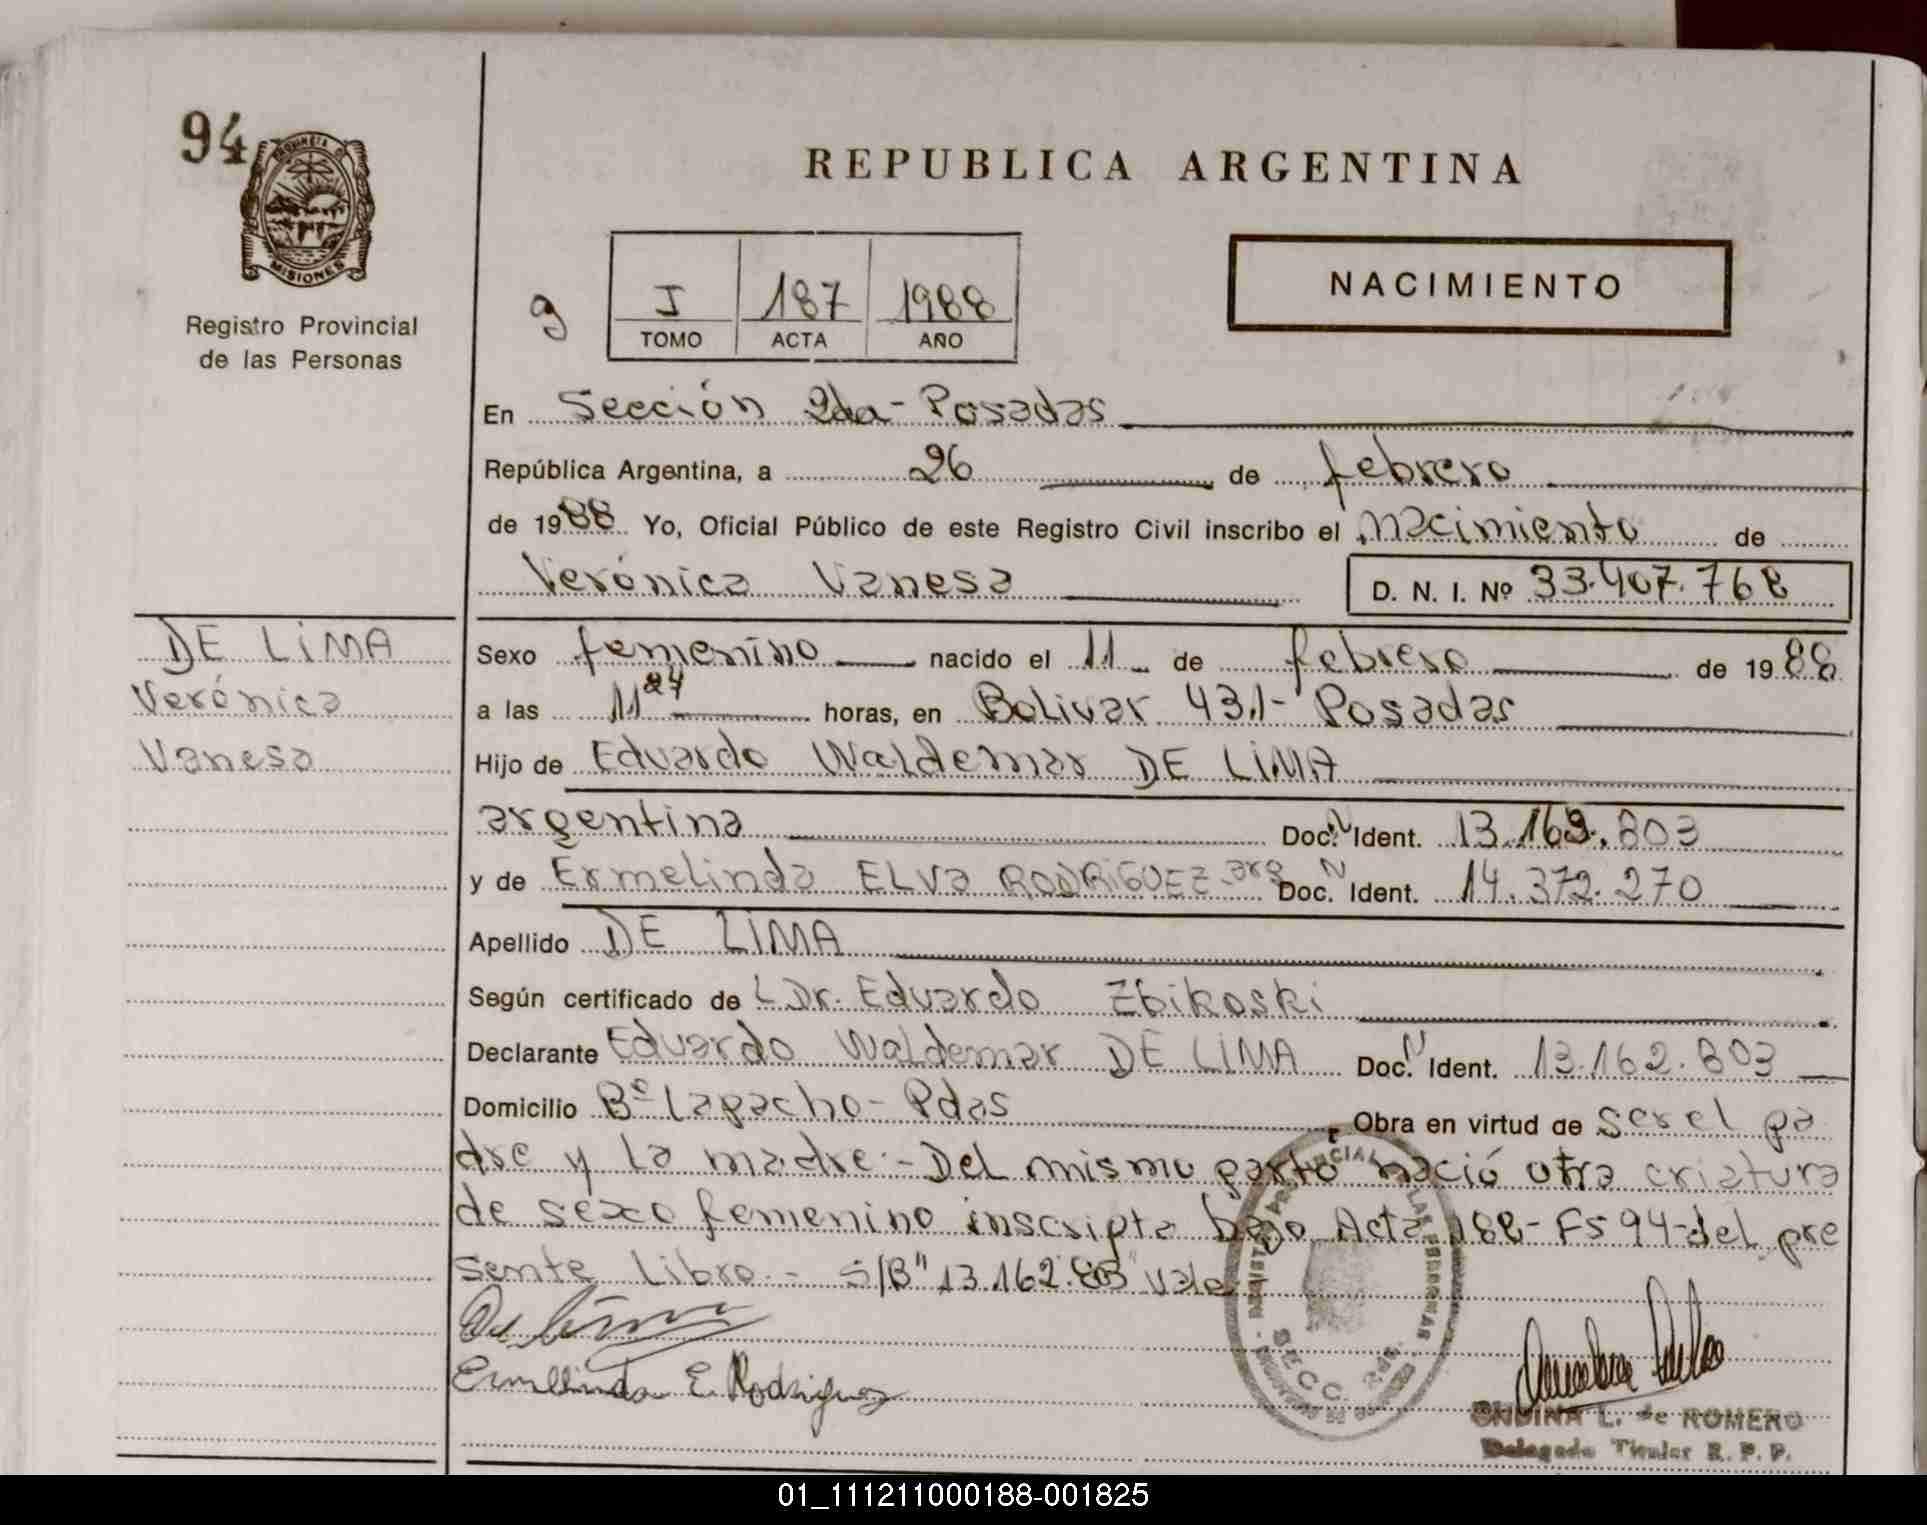 94
PROVINCIA D
MISIONES
Registro Provincial
de las Personas
REPUBLICA ARGENTINA
g
I 187 1988
TOMO ACTA AÑO
NACIMIENTO
En Sección 2da - Posadas
República Argentina, a 26 de febrero
de 1988 Yo, Oficial Público de este Registro Civil inscribo el nacimiento de
Verónica Vanesa D. N. I. Nº 33.407.768
DE LIMA
Verónica
Vanesa
Sexo femenino nacido el 11 de febrero de 1988
a las 11 27 horas, en Bolivar 431- Posadas
Hijo de Eduardo Waldemar DE LIMA
argentina Doc. N Ident. 13.162.803
y de Ermelinda ELVa RODRIGUEZ-arg Doc. N Ident. 14.372.270
Apellido DE LIMA
Según certificado de L Dr. Eduardo Zbikoski
Declarante Eduardo Waldemar DE LIMA Doc. N Ident. 13.162.803
Domicilio Bº Lapacho - Pdas Obra en virtud de ser el pa
dre y la madre.- Del mismo parto nació otra criatura
de sexo femenino inscripta bajo Acta 188- Fs 94-del pre
sente Libro.- S/B" 13.162.803" vale
De Lima
Ermelinda E. Rodriguez
SECC. 2da
ONDINA L. de ROMERO
Delegada Titular R. P. P.
01_111211000188-001825